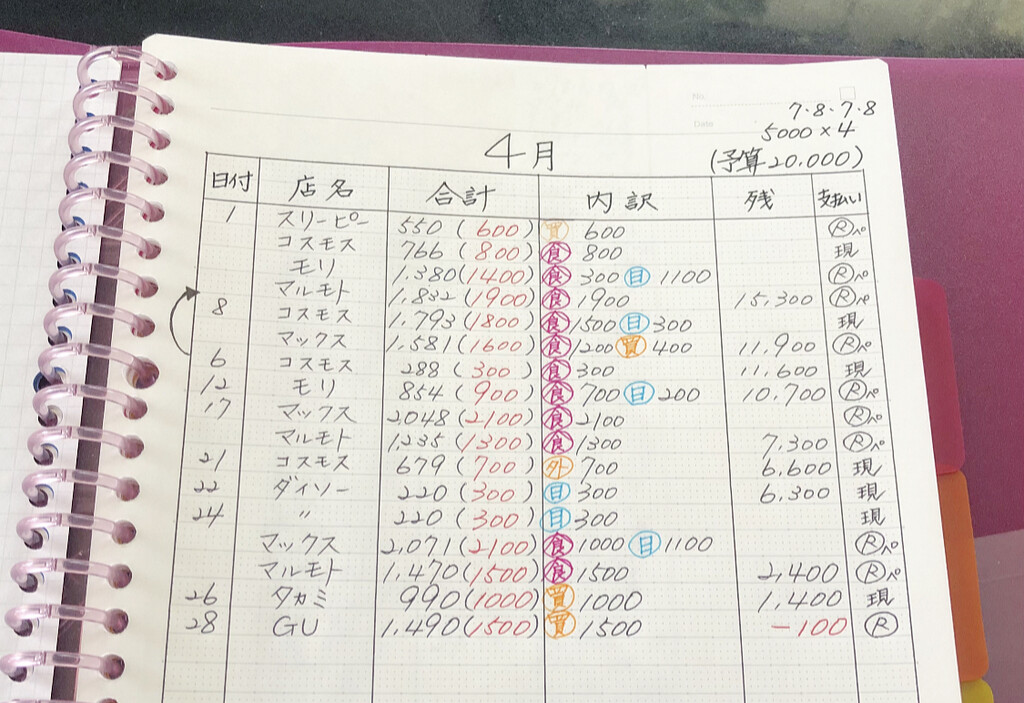 No.
7・8・7・8
Date
5000×4
4月
(予算20,000)
日付 店名 合計 内訳 残 支払い
1 スリーピー 550 (600) 買 600 Ⓡペ
コスモス 766 (800) 食 800 現
モリ 1,380 (1400) 食 300 日 1100 Ⓡペ
マルモト 1,832 (1900) 食 1900 15,300 Ⓡペ
8 コスモス 1,793 (1800) 食 1500 日 300 現
マックス 1,581 (1600) 食 1200 買 400 11,900 Ⓡペ
6 コスモス 288 (300) 食 300 11,600 現
12 モリ 854 (900) 食 700 日 200 10,700 Ⓡペ
17 マックス 2,048 (2100) 食 2100 Ⓡペ
マルモト 1,235 (1300) 食 1300 7,300 Ⓡペ
21 コスモス 679 (700) 外 700 6,600 現
22 ダイソー 220 (300) 日 300 6,300 現
24 〃 220 (300) 日 300 現
マックス 2,071 (2100) 食 1000 日 1100 Ⓡペ
マルモト 1,470 (1500) 食 1500 2,400 Ⓡペ
26 タカミ 990 (1000) 買 1000 1,400 現
28 GU 1,490 (1500) 買 1500 -100 Ⓡ